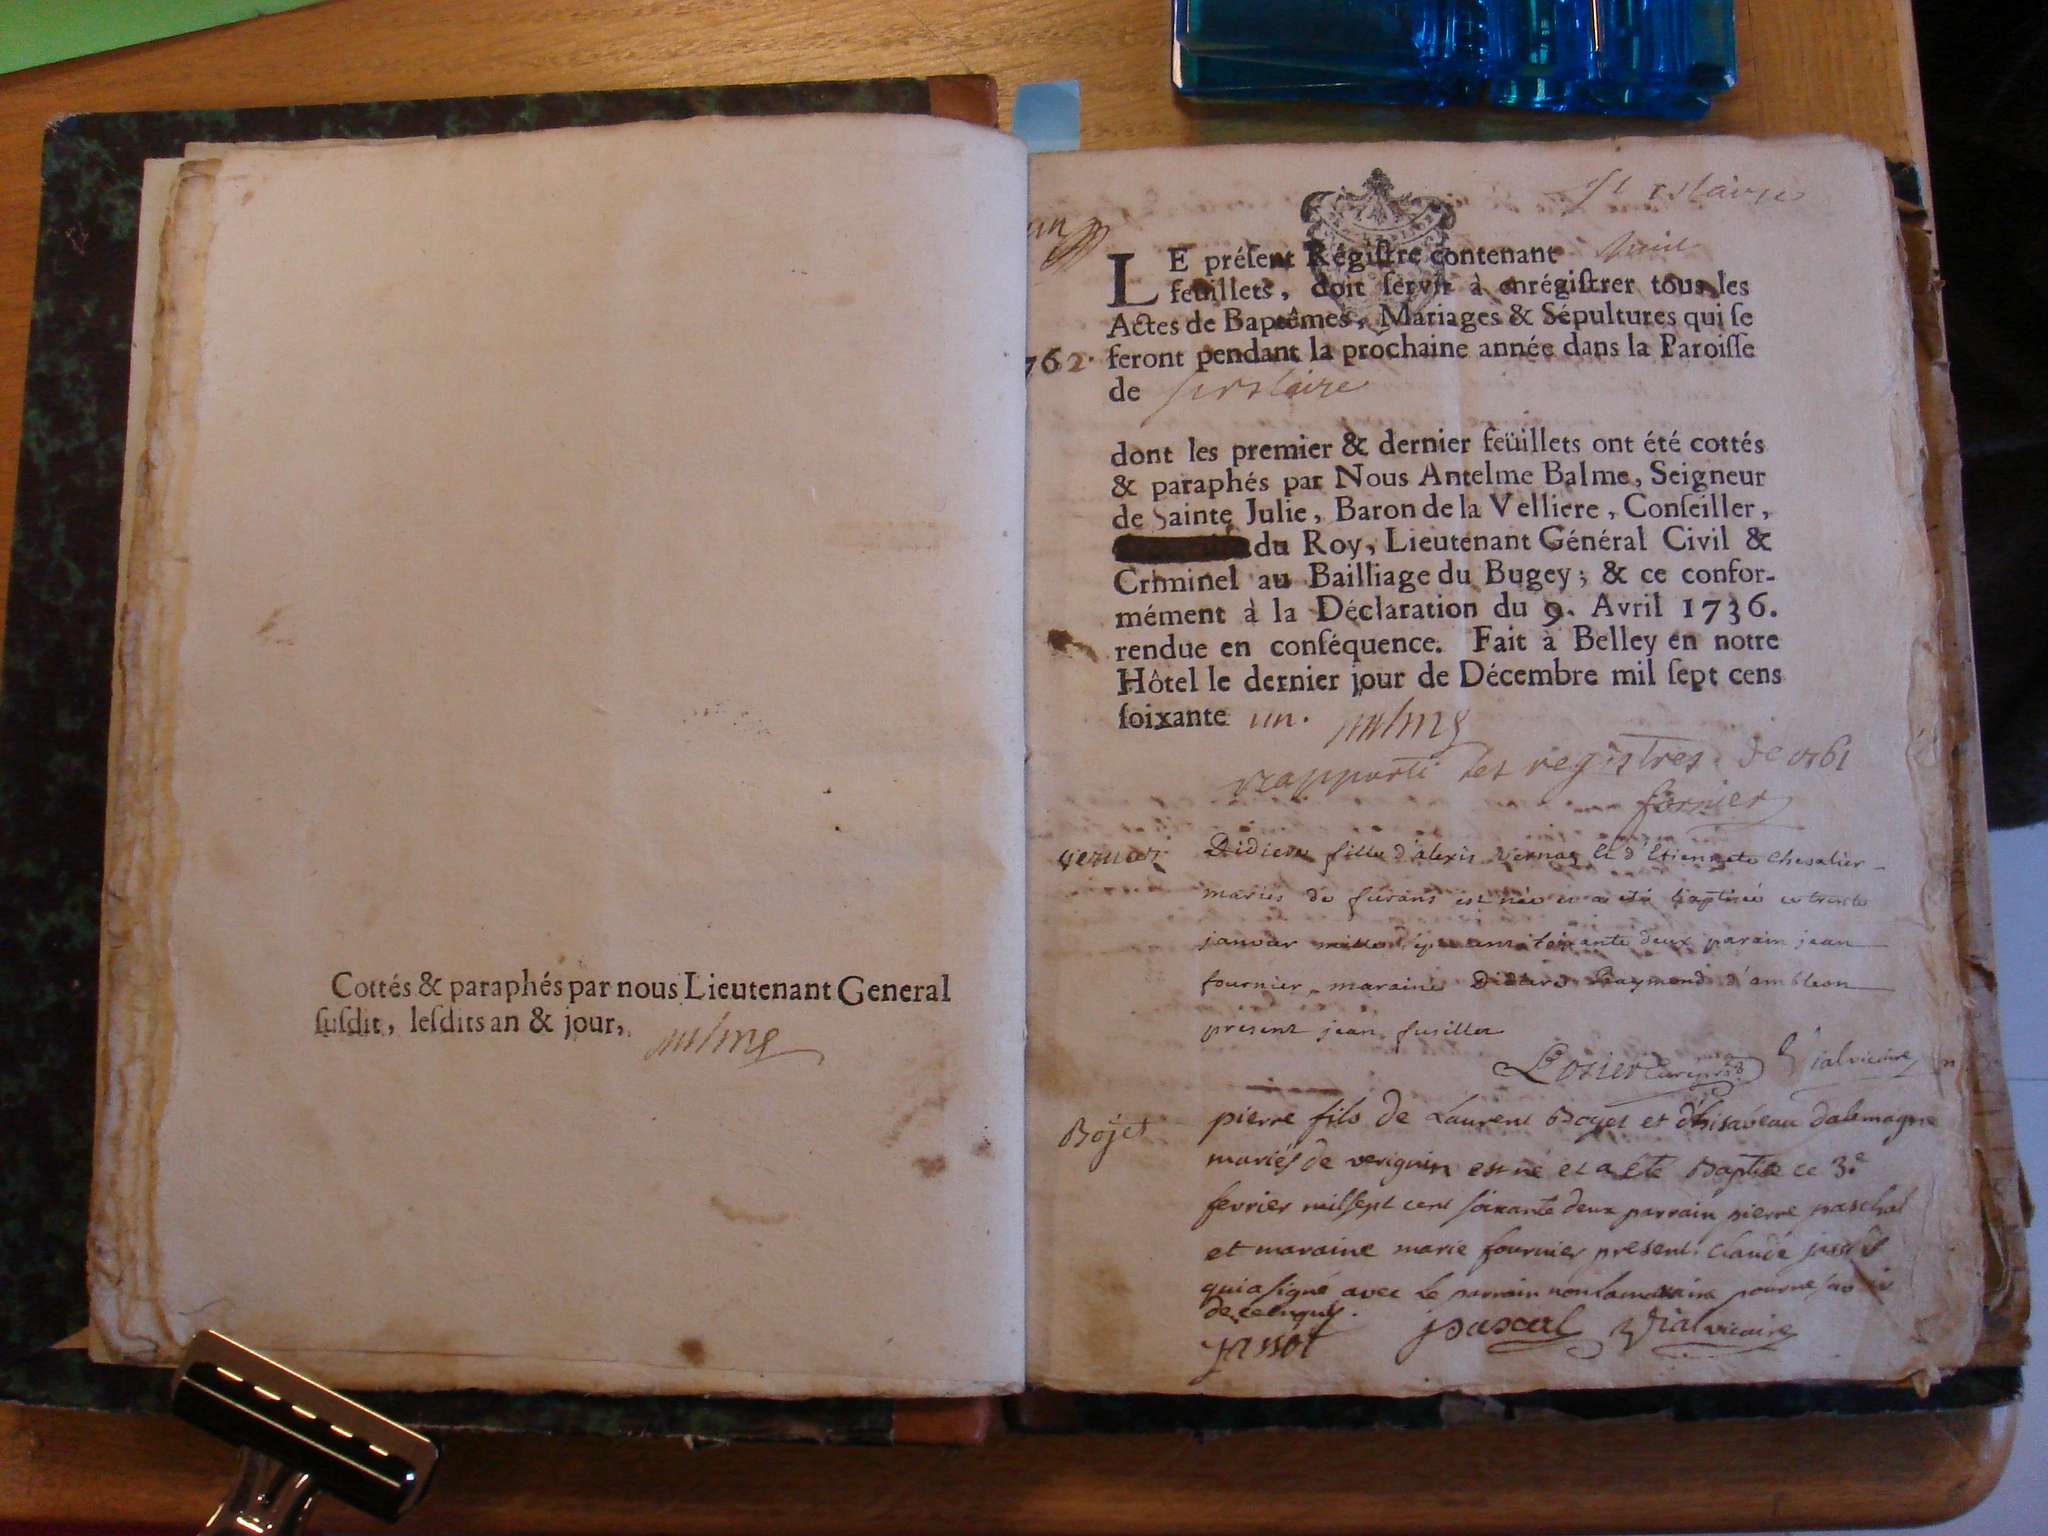 Cottés & paraphés par nous Lieutenant General
ſuſdit, leſdits an & jour,
un
LE préſent Régiſtre contenant huit
feuillets, doit ſervir à enrégiſtrer tous les
Actes de Baptêmes, Mariages & Sépultures qui ſe
762. feront pendant la prochaine année dans la Paroiſſe
de
dont les premier & dernier feüillets ont été cottés
& paraphés par Nous Antelme Balme, Seigneur
de Sainte Julie, Baron de la Velliere, Conſeiller,
du Roy, Lieutenant Général Civil &
Criminel au Bailliage du Bugey; & ce confor-
mément à la Déclaration du 9. Avril 1736.
rendue en conſéquence. Fait à Belley en notre
Hôtel le dernier jour de Décembre mil ſept cens
ſoixante un.
rapporté les registres de 1761
fornier
Didiere fille d'alexis vernaz et d'Etiennete Chevalier
mariés de furans est née et a été baptisée ce trente
janvier mille sept cent soixante deux parain jean
fournier maraine Didiere Raymond d'ambleon
present jean fusillet
Vial vicaire
Bojet
pierre fils de Laurent Boget et d'hisabeau dalemagne
mariés de verignin est né et a été Baptisé ce 3.e
fevrier mil sept cent soixante deux parrain pierre paschal
et maraine marie fournier present Claude jassot
qui a signé avec le parrain non la maraine pour ne savoir
de ce enquis.
jassot pascal Vial vicaire